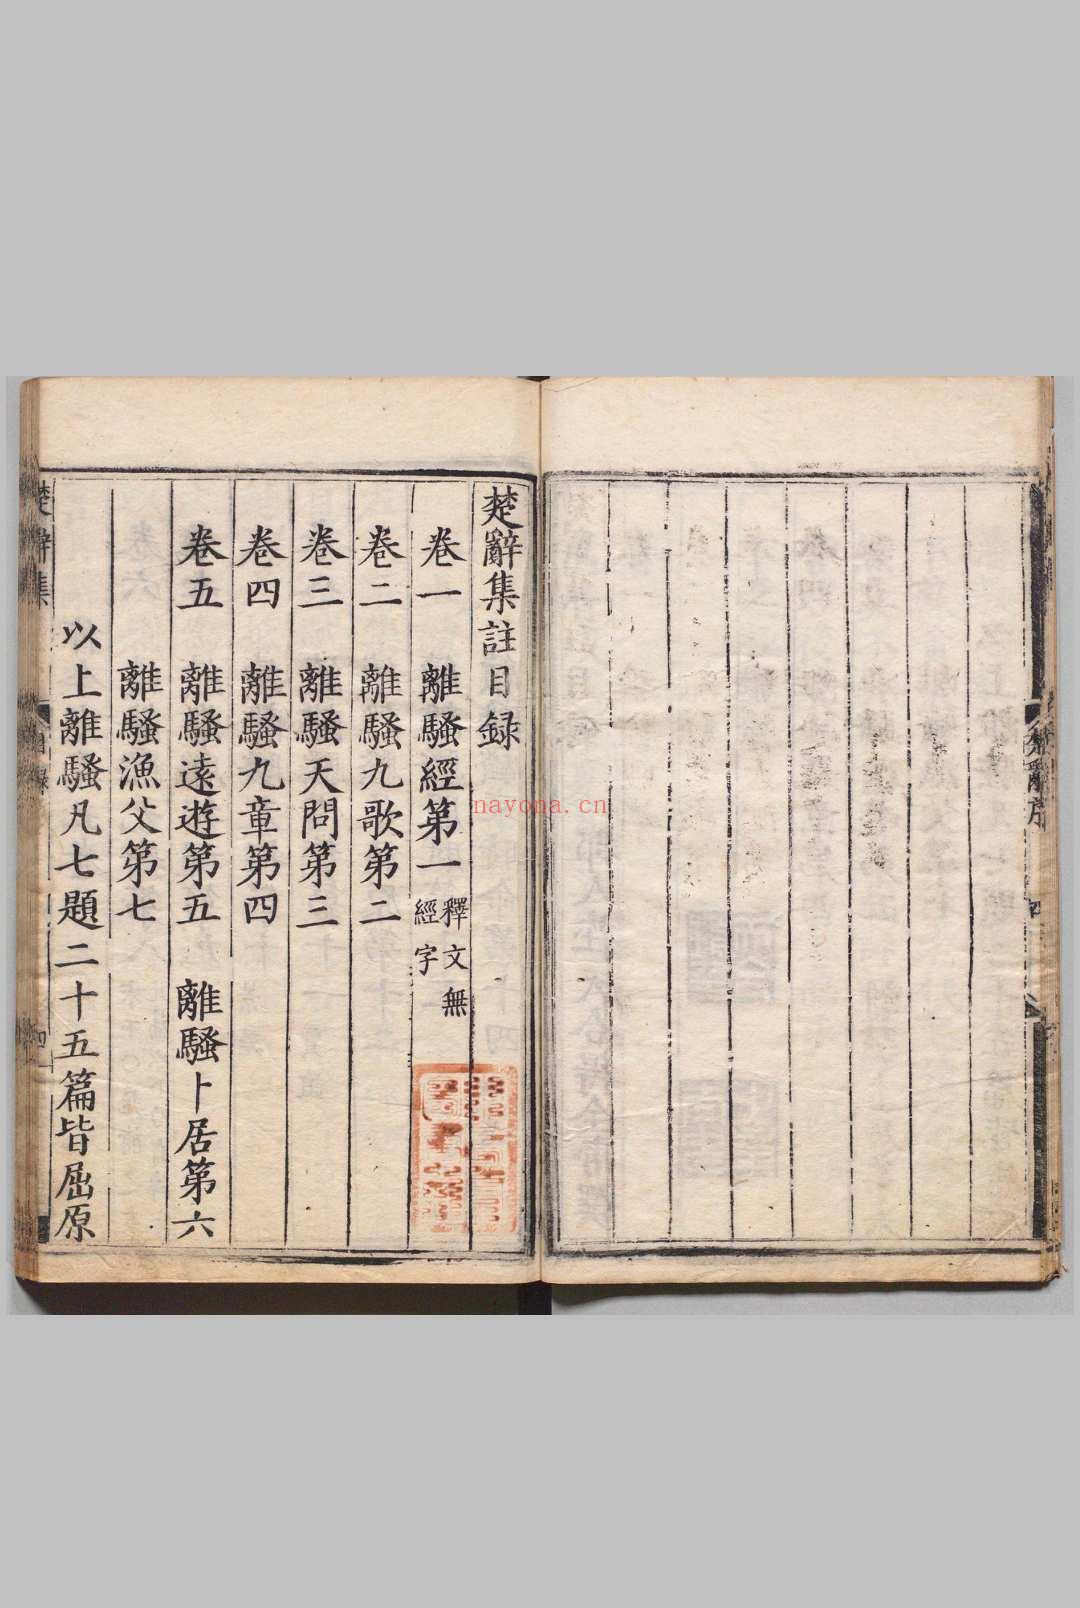 楚辭序
楚辭集註目録
卷一　離騷經第一　釋文無經字
卷二　離騷九歌第二
卷三　離騷天問第三
卷四　離騷九章第四
卷五　離騷遠遊第五　離騷卜居第六
離騷漁父第七
以上離騷凡七題二十五篇皆屈原
楚辭集
目録
四
nayona.cn